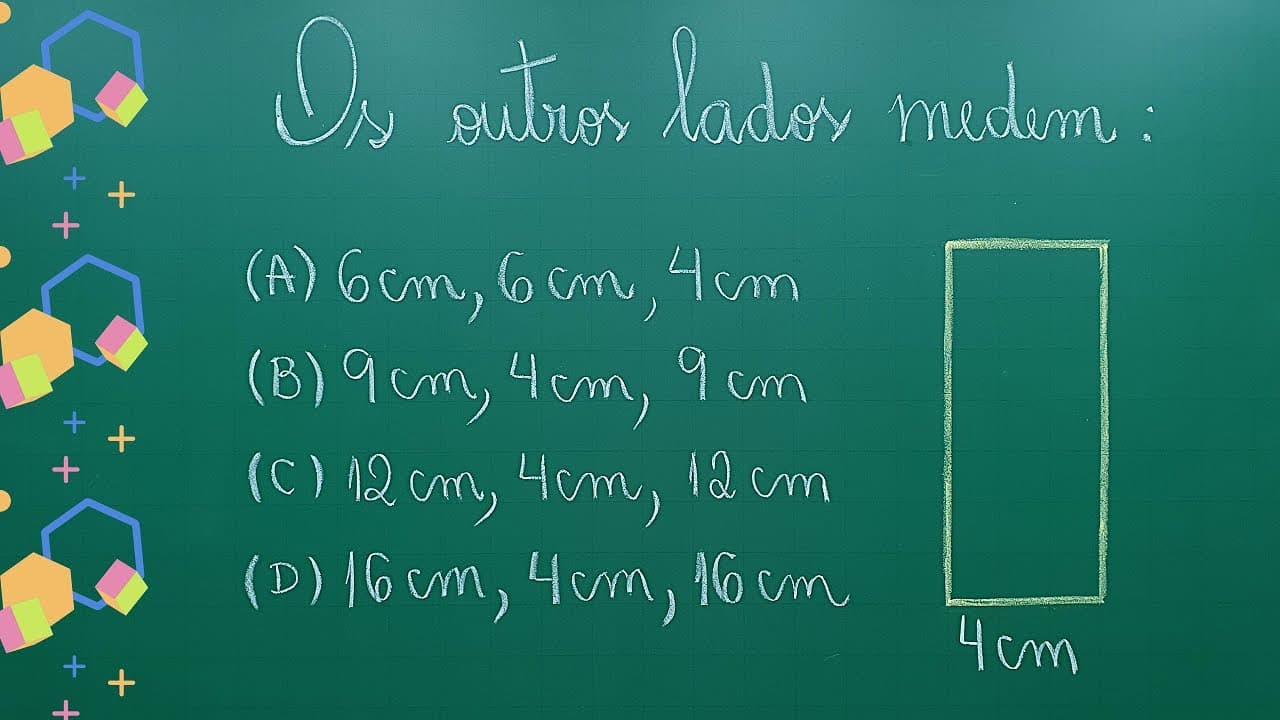 Os outros lados medem:
(A) 6cm, 6cm, 4cm
(B) 9cm, 4cm, 9cm
(C) 12cm, 4cm, 12cm
(D) 16cm, 4cm, 16cm
4cm